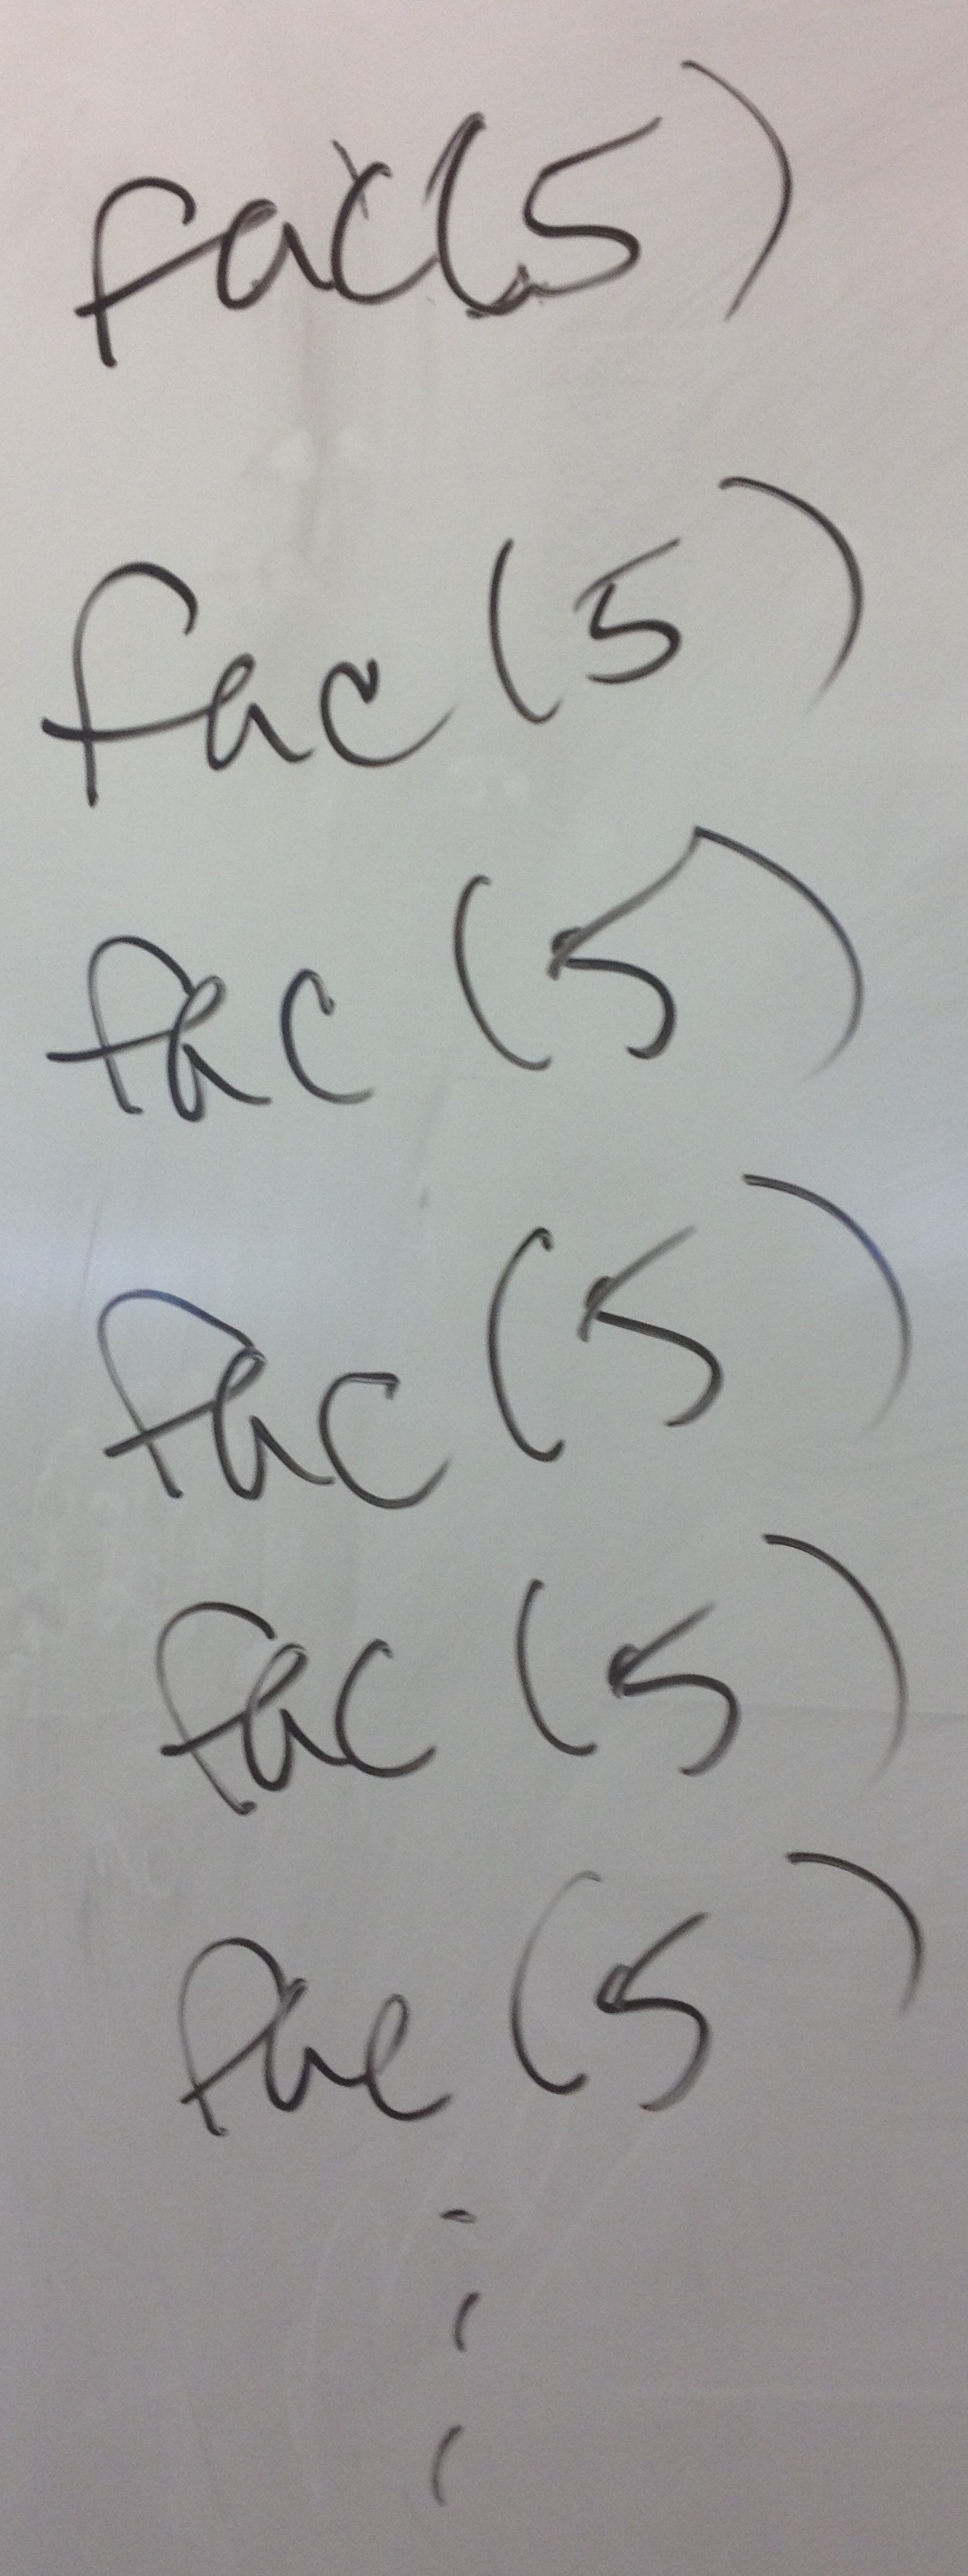 fac(5)
fac(5)
fac(5)
fac(5)
fac(5)
fac(5)
⋮